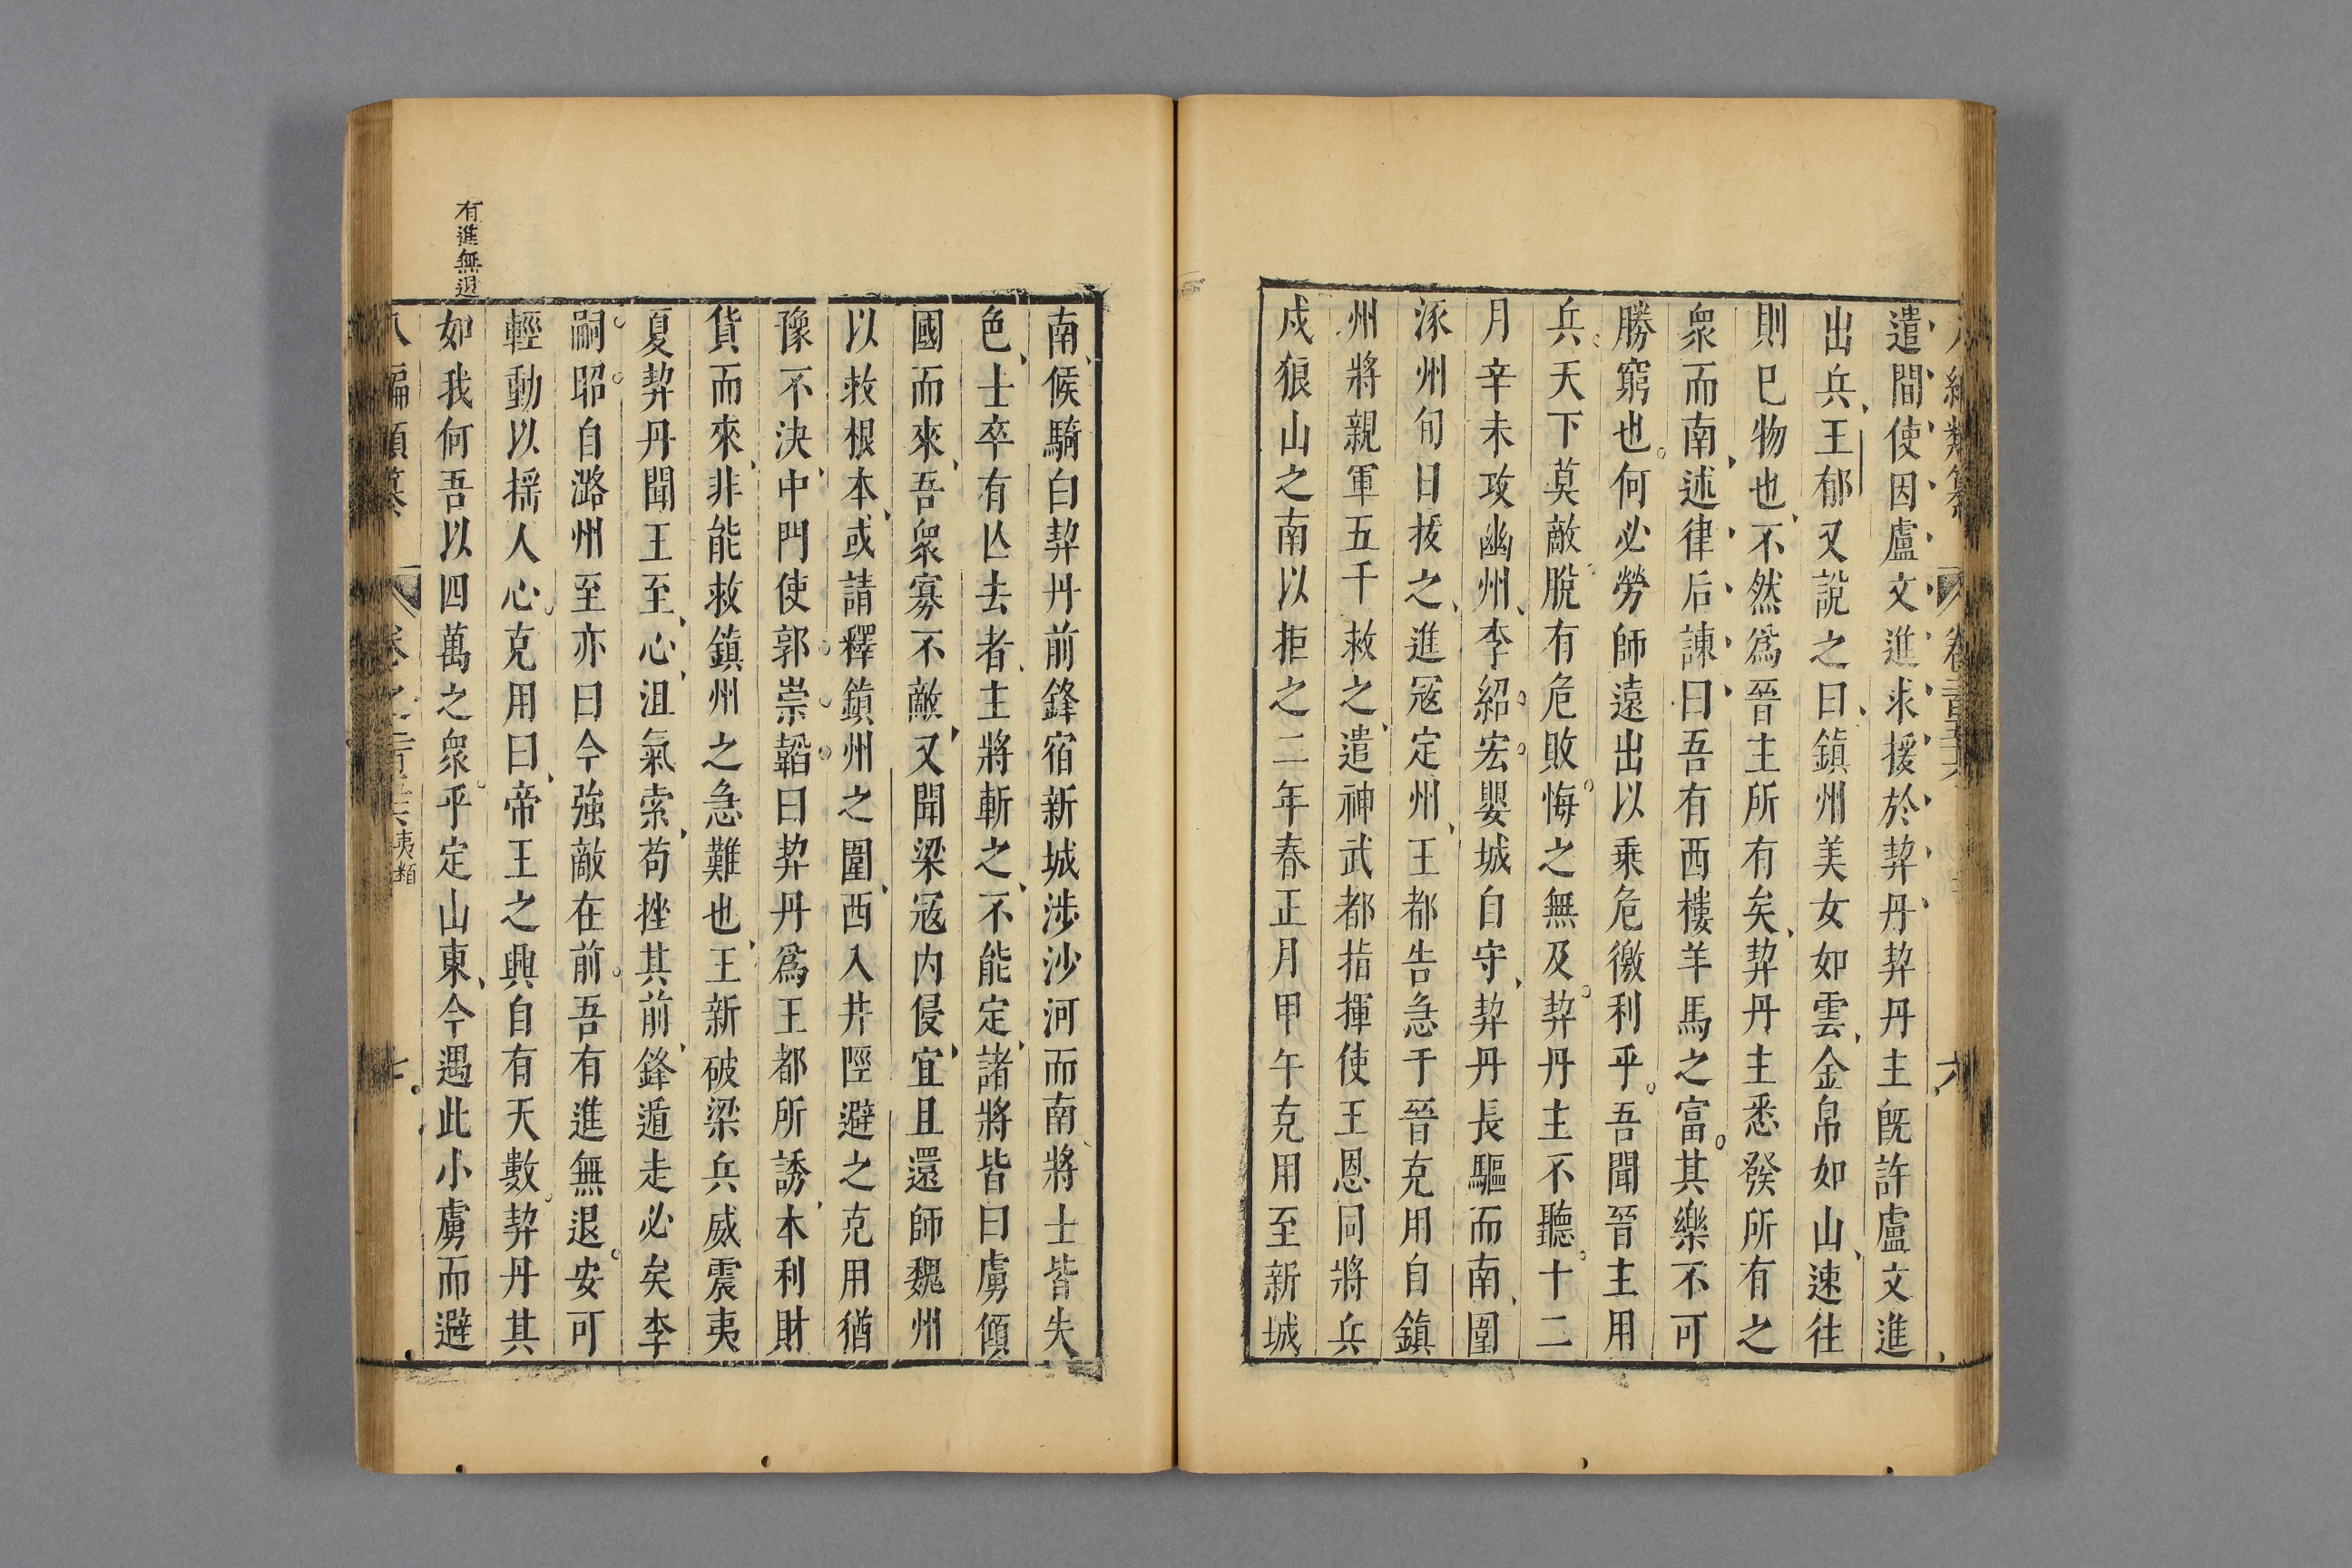 遣間使因盧文進求援於契丹契丹主旣許盧文進
出兵王郁又說之曰鎮州美女如雲金帛如山速往
則巳物也不然爲晉主所有矣契丹主悉發所有之
衆而南述律后諫曰吾有西樓羊馬之富其樂不可
勝窮也何必勞師遠出以乗危徼利乎吾聞晉主用
兵天下莫敵脫有危敗悔之無及契丹主不聽十二
月辛未攻幽州李紹宏嬰城自守契丹長驅而南圍
涿州旬日拔之進寇定州王都告急于晉克用自鎮
州將親軍五千救之遣神武都指揮使王恩同將兵
戍狼山之南以拒之二年春正月甲午克用至新城
南候騎白契丹前鋒宿新城涉沙河而南將士皆失
色士卒有亾去者主將斬之不能定諸將皆曰虜傾
國而來吾衆寡不敵又聞梁寇内侵宜且還師魏州
以救根本或請釋鎮州之圍西入井陘避之克用猶
豫不決中門使郭崇韜曰契丹爲王都所誘本利財
貨而來非能救鎮州之急難也王新破梁兵威震夷
夏契丹聞王至心沮氣索苟挫其前鋒遁走必矣李
嗣昭自潞州至亦曰今強敵在前吾有進無退安可
輕動以揺人心克用曰帝王之興自有天數契丹其
如我何吾以四萬之衆乎定山東今遇此小虜而避
有進無退
編類纂 卷之 夷類